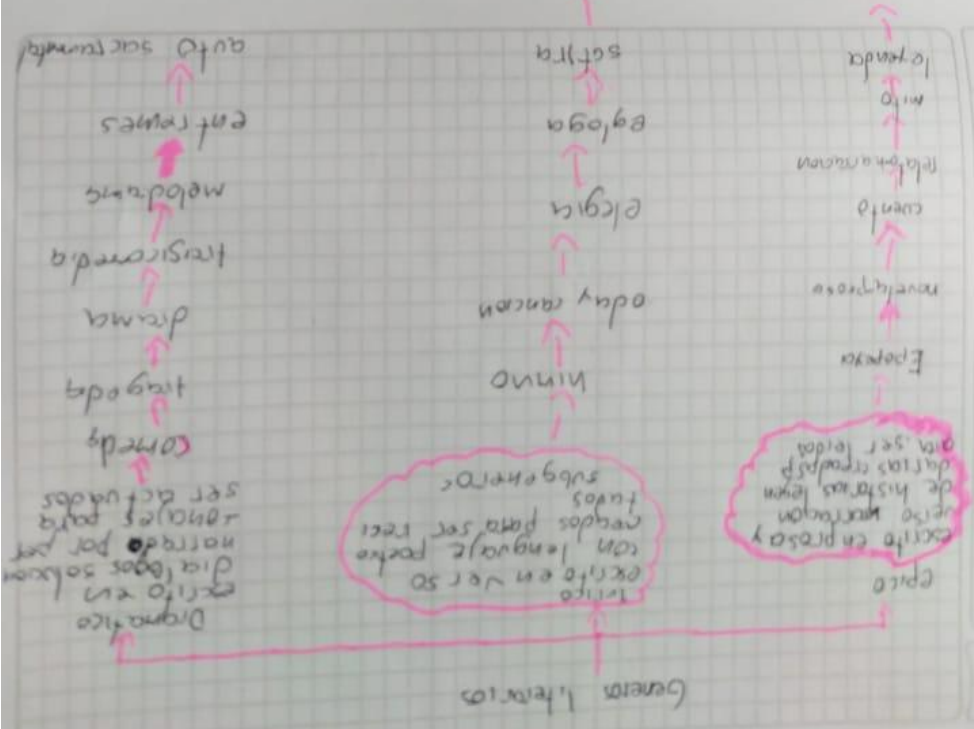 Generos literarios
epico
escrito en prosa y
verso narracion
de historias leyen
darias creadas p
ara ser leidos
Epopeya
novela/prosa
cuento
relato/narracion
mito
leyenda
lirico
escrito en verso
con lenguaje poetico
para ser reci
tados
subgeneros
himno
oda y cancion
elegia
egloga
satira
Dramatico
escrito en
dialogos
narrado por per
sonajes para
ser actuados
comedia
tragedia
drama
tragicomedia
melodrama
entremes
auto sacramental